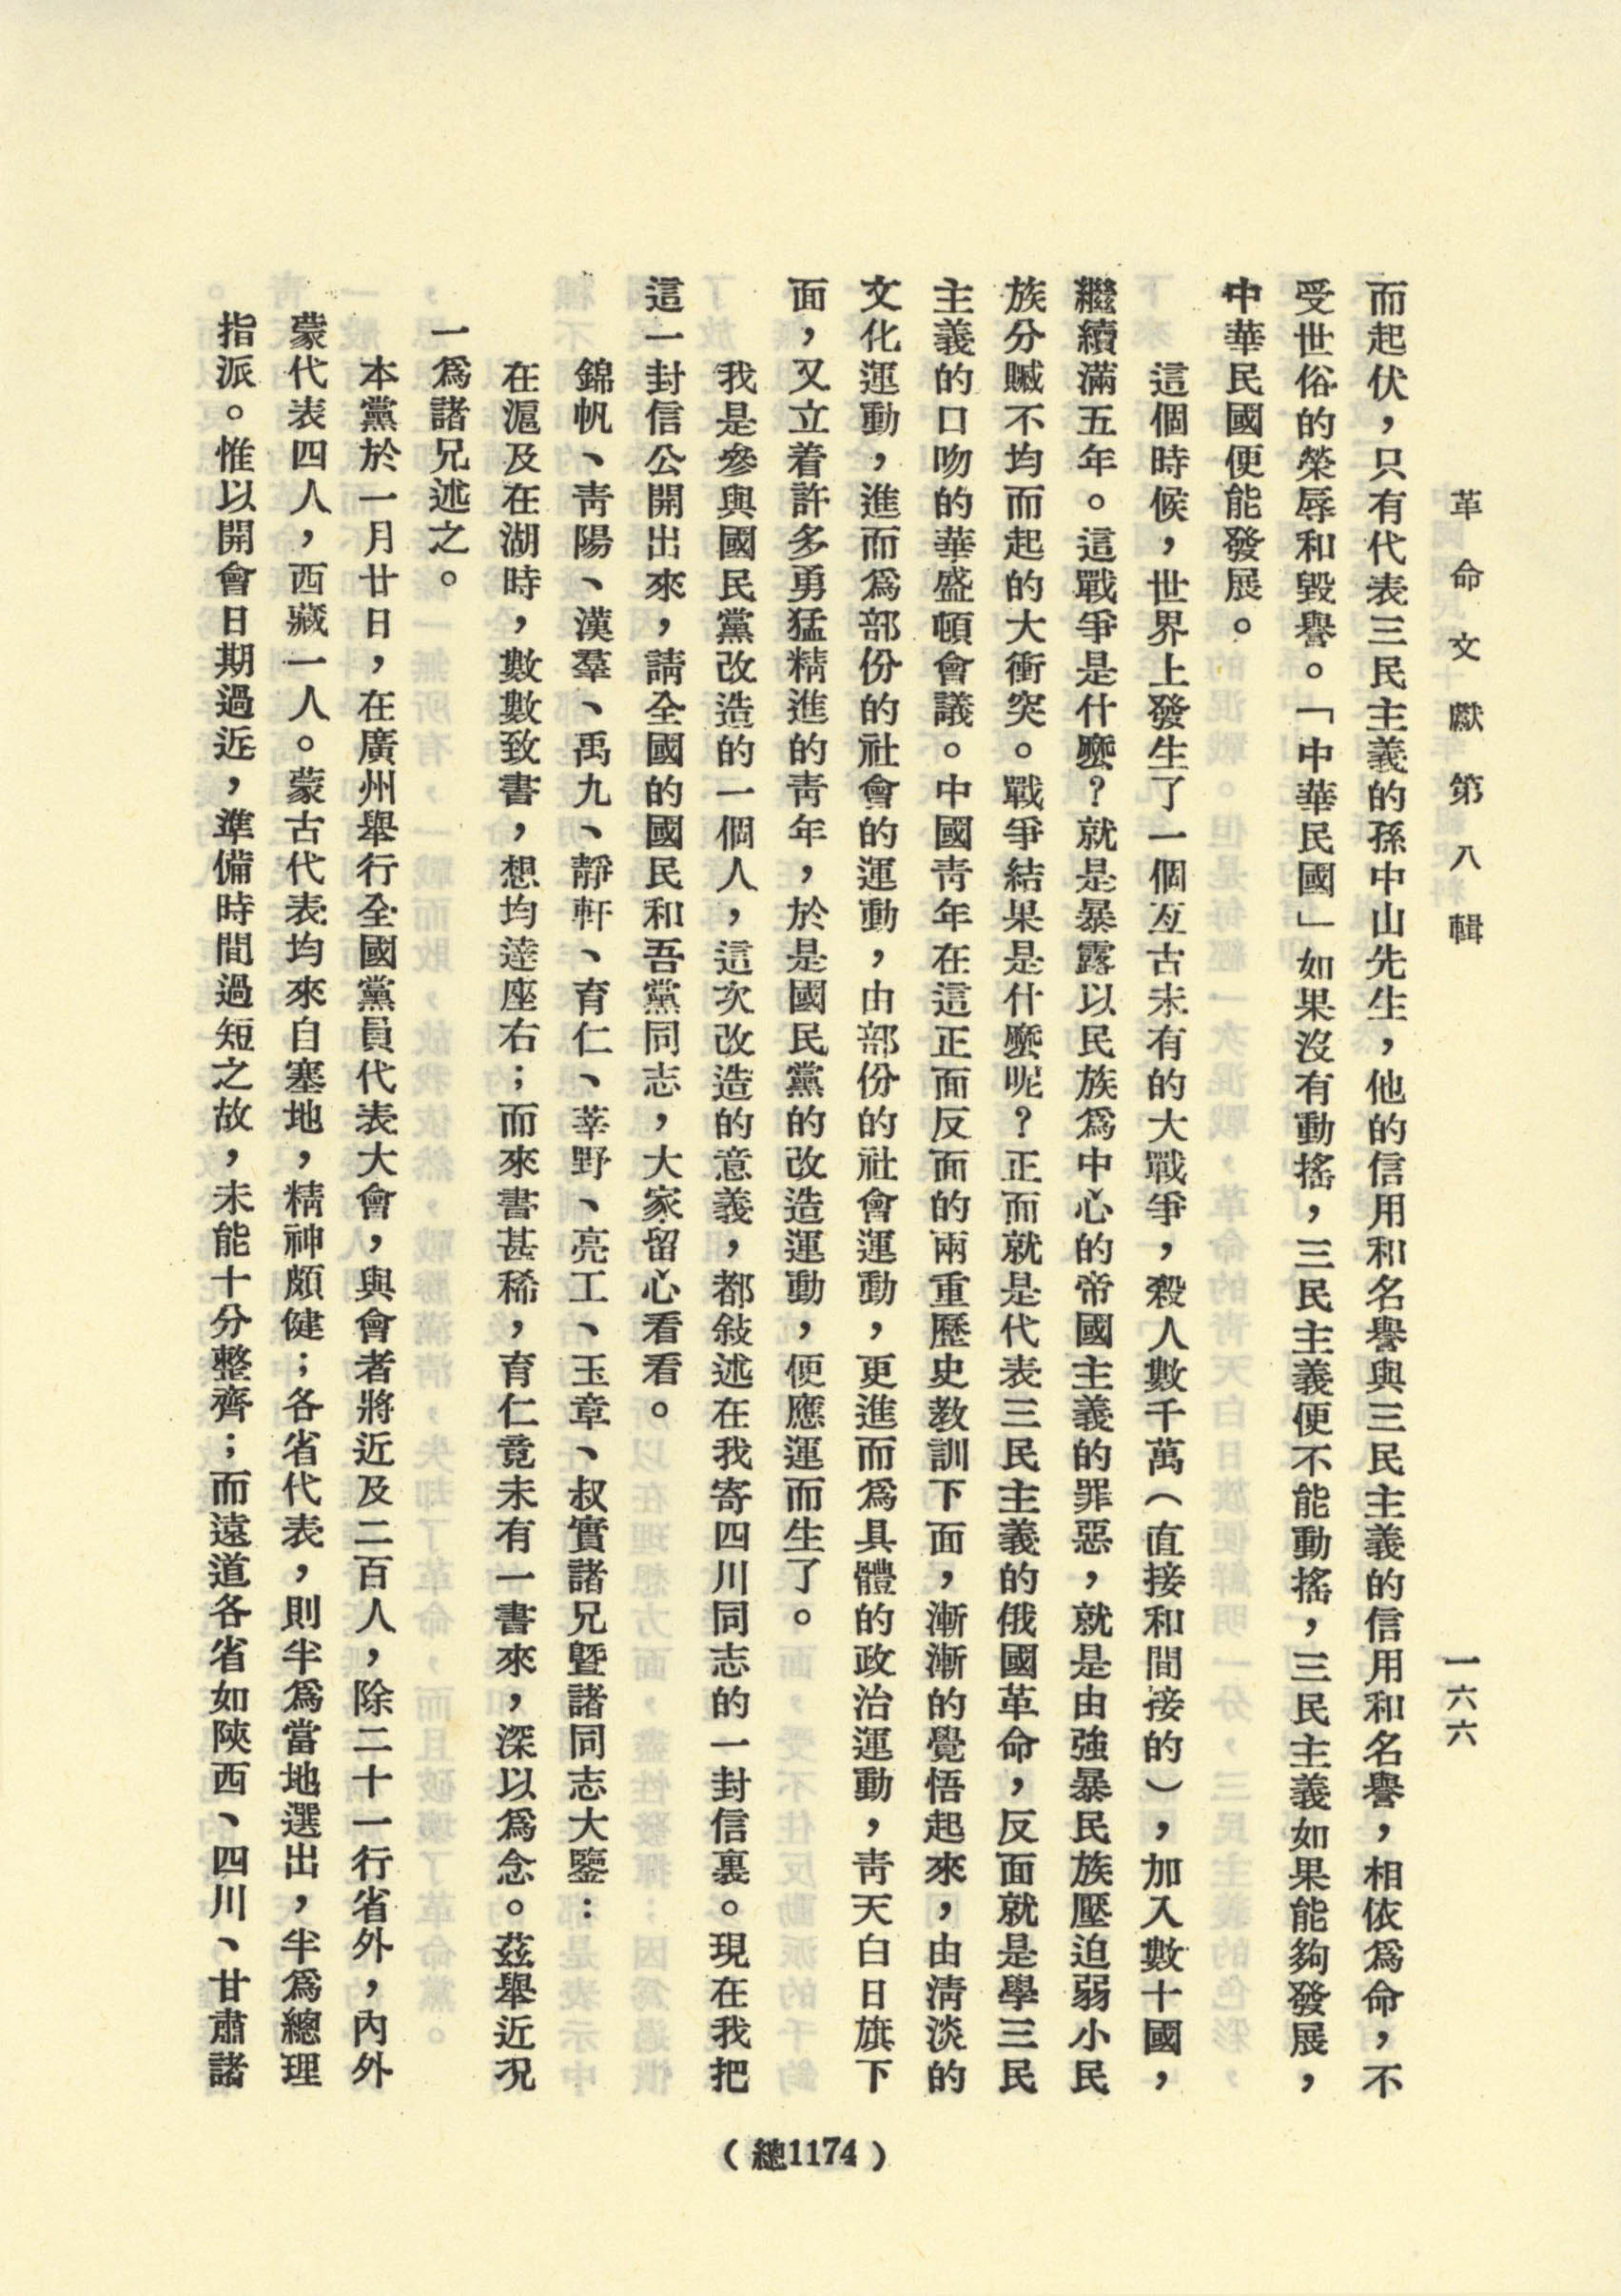 革命文獻第八輯
一六六
而起伏，只有代表三民主義的孫中山先生，他的信用和名譽與三民主義的信用和名譽，相依爲命，不
受世俗的榮辱和毀譽。「中華民國」如果沒有動搖，三民主義便不能動搖，三民主義如果能夠發展，
中華民國便能發展。
這個時候，世界上發生了一個亙古未有的大戰爭，殺人數千萬（直接和間接的），加入數十國，
繼續滿五年。這戰爭是什麼？就是暴露以民族爲中心的帝國主義的罪惡，就是由強暴民族壓迫弱小民
族分贓不均而起的大衝突。戰爭結果是什麼呢？正而就是代表三民主義的俄國革命，反面就是學三民
主義的口吻的華盛頓會議。中國青年在這正面反面的兩重歷史教訓下面，漸漸的覺悟起來，由清淡的
文化運動，進而爲部份的社會的運動，由部份的社會運動，更進而爲具體的政治運動，青天白日旗下
面，又立着許多勇猛精進的青年，於是國民黨的改造運動，便應運而生了。
我是參與國民黨改造的一個人，這次改造的意義，都敍述在我寄四川同志的一封信裏。現在我把
這一封信公開出來，請全國的國民和吾黨同志，大家留心看看。
錦帆、青陽、漢羣、禹九、靜軒、育仁、莘野、亮工、玉章、叔實諸兄曁諸同志大鑒：
在滬及在湖時，數數致書，想均達座右；而來書甚稀，育仁竟未有一書來，深以爲念。茲舉近況
一爲諸兄述之。
本黨於一月廿日，在廣州舉行全國黨員代表大會，與會者將近及二百人，除二十一行省外，內外
蒙代表四人，西藏一人。蒙古代表均來自塞地，精神頗健；各省代表，則半爲當地選出，半爲總理
指派。惟以開會日期過近，準備時間過短之故，未能十分整齊；而遠道各省如陝西、四川、甘肅諸
（總1174）